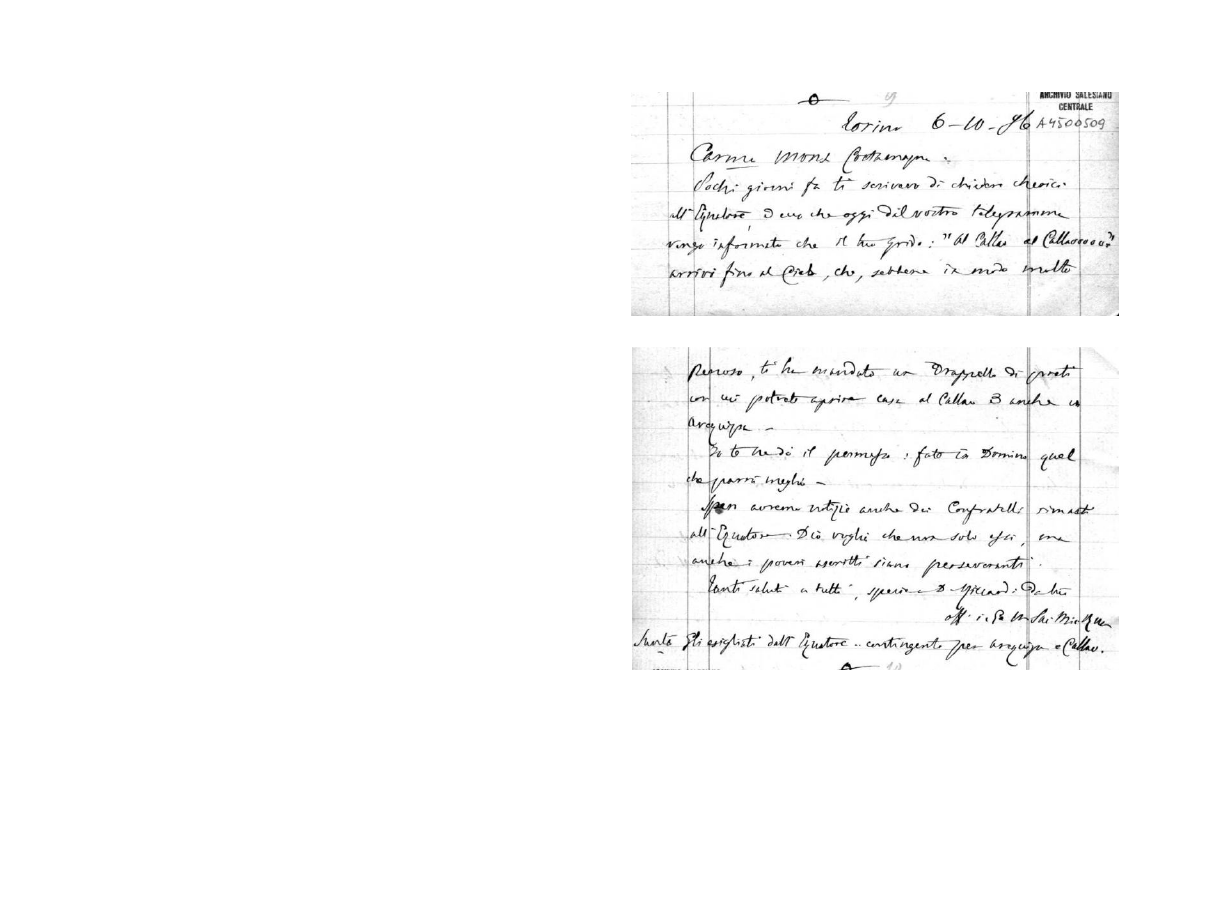 ARCHIVIO SALESIANO
CENTRALE
Torino 6-10-96 A4500509
Carme Mons Costamagna.
Pochi giorni fa ti scrivevo di chiedere chierici
all'Equatore, ed ecco che oggi dal vostro telegramma
vengo informato che il tuo grido: "Al Callao al Callaooooo"
arrivò fino al Cielo, che, sebbene in modo molto
penoso, ti ha mandato un Drappello di preti
con cui potrete aprire casa al Callao e anche in
Arequipa -
Io te ne dò il permesso: fate in Domino quel
che parrà meglio -
Spero avremo notizie anche dei Confratelli rimasti
all'Equatore. Dio voglia che non solo essi, ma
anche i poveri ascritti siano perseveranti.
Tanti saluti a tutti, specie a D. Riccardi. Da tuo
aff. in G. M. Sac. Mic. Rua
gli esigliati dall'Equatore.. contingente per Arequipa e Callao.